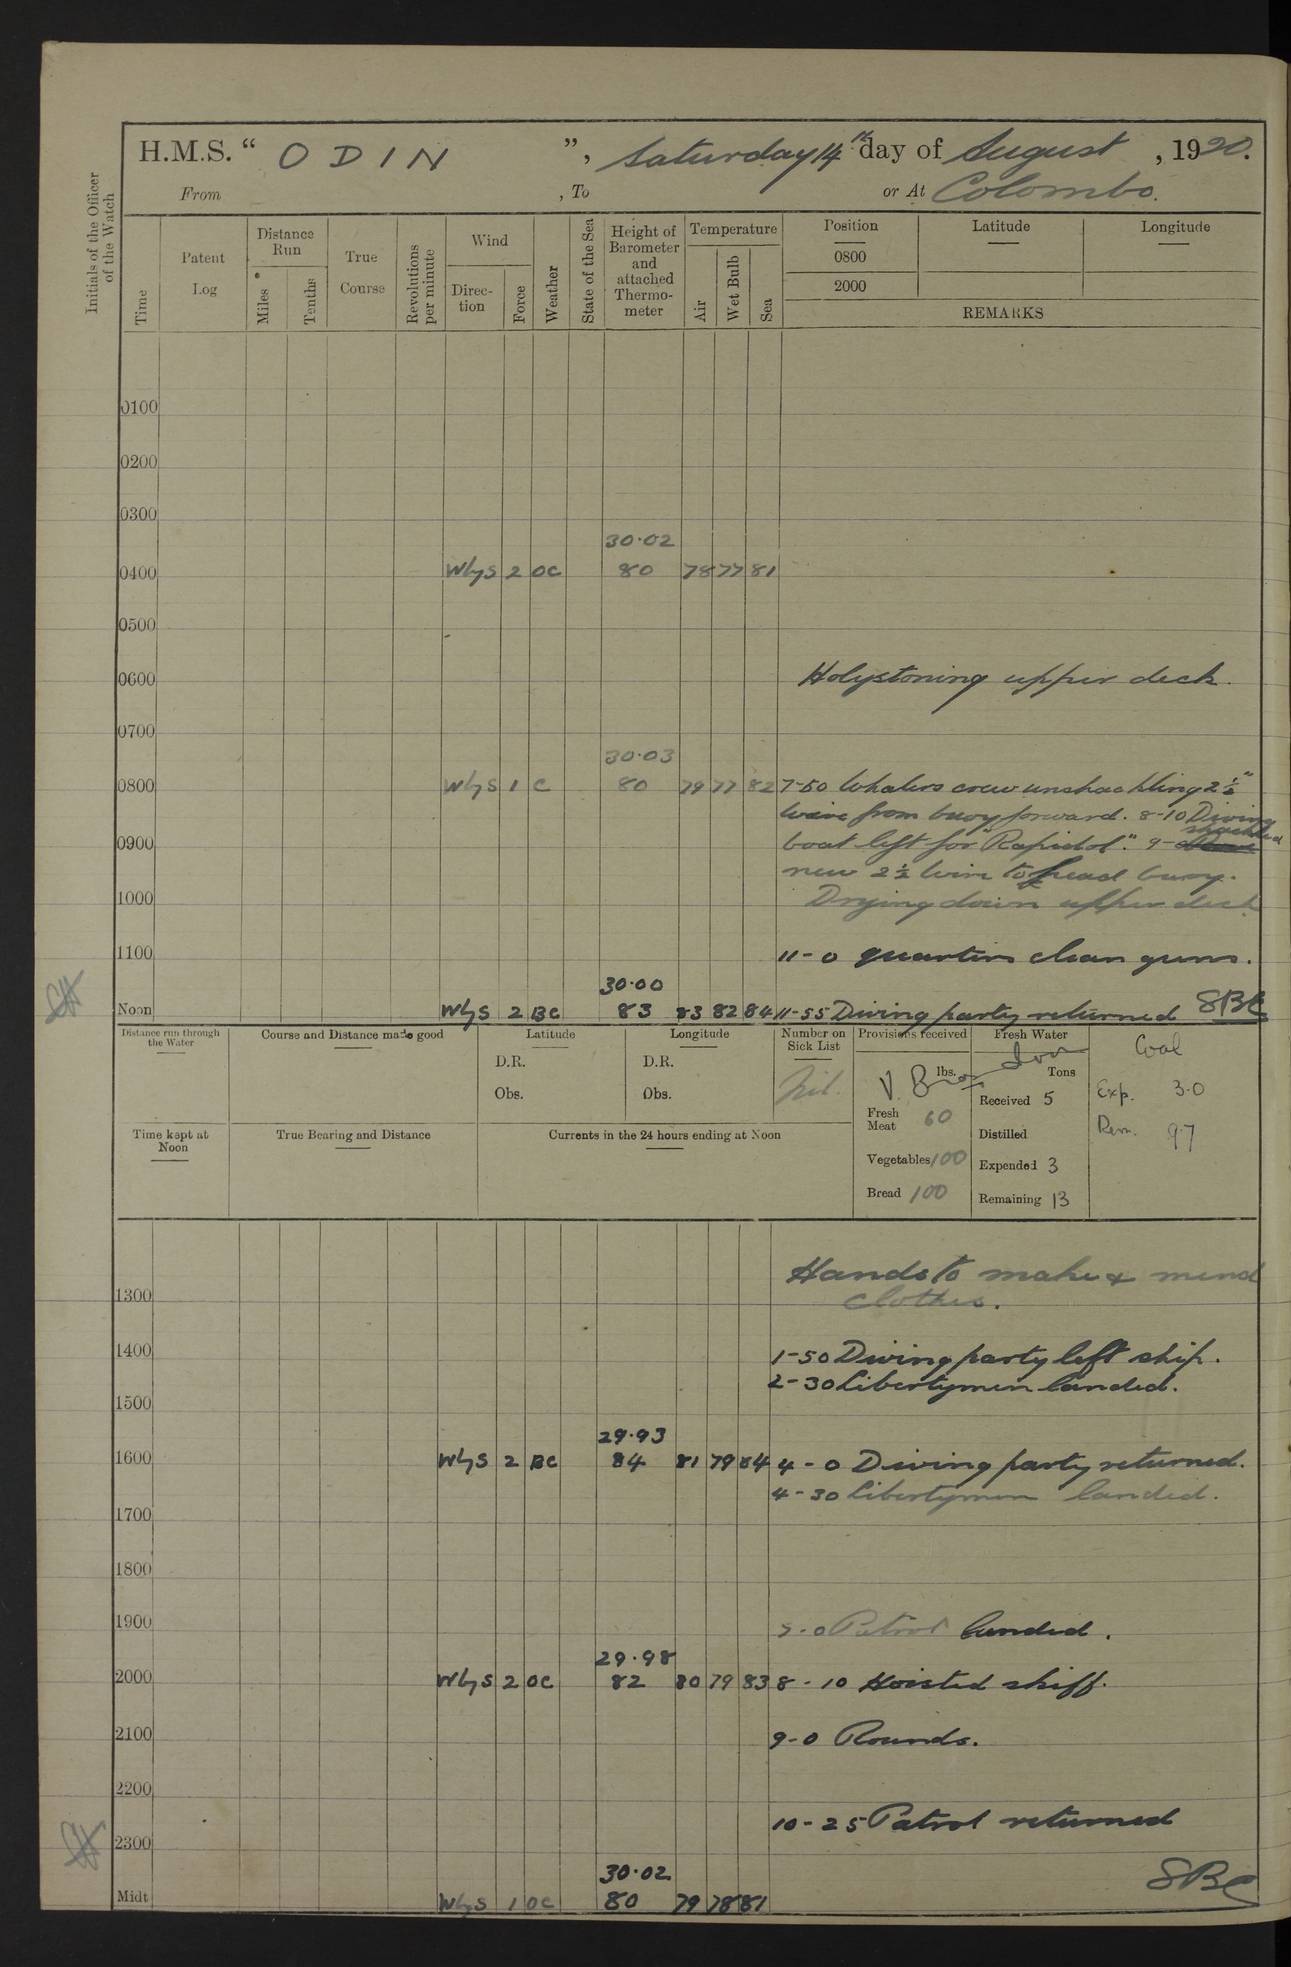 H.M.S. “ ODIN ”, Saturday 14th day of August, 1920.
From , To or At Colombo.
Initials of the Officer of the Watch
Time Patent Log Distance Run Miles Tenths True Course Revolutions per minute Wind Direction Force Weather State of the Sea Height of Barometer and attached Thermometer Temperature Air Wet Bulb Sea Position Latitude Longitude
0800
2000
REMARKS
0100
0200
0300
30·02
0400 WbyS 2 OC 80 78 77 81
0500
0600 Holystoning upper deck.
0700
30·03
0800 WbyS 1 C 80 79 77 82 7-50 Whalers crew unshackling 2½"
wire from buoy forward. 8-10 Diving
shackled
0900 boat left for "Rapidol". 9-0
new 2½ wire to head buoy.
1000 Drying down upper deck
1100 11-0 quarters clean guns.
30·00
Noon WbyS 2 BC 83 83 82 84 11-55 Diving party returned SBC
Distance run through the Water Course and Distance made good Latitude Longitude Number on Sick List Provisions received Fresh Water Coal
D.R. D.R. lbs. Tons
Obs. Obs. Nil. V. Bros Received 5 Exp. 3·0
Fresh Meat 60 Distilled Rem. 97
Time kept at Noon True Bearing and Distance Currents in the 24 hours ending at Noon
Vegetables 100 Expended 3
Bread 100 Remaining 13
Hands to make & mend
1300 clothes.
1400 1-50 Diving party left ship.
2-30 Libertymen landed.
1500
29·93
1600 WbyS 2 BC 84 81 79 84 4-0 Diving party returned.
4-30 Libertymen landed.
1700
1800
1900 5-0 Patrol landed.
29·98
2000 WbyS 2 OC 82 80 79 83 8-10 Hoisted skiff.
2100 9-0 Rounds.
2200
10-25 Patrol returned
2300
30·02
Midt WbyS 1 OC 80 79 78 81 SBC